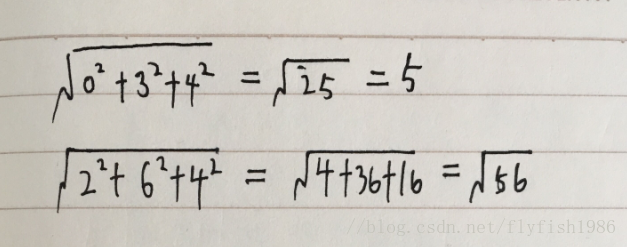 √(0²+3²+4²) = √25 = 5
√(2²+6²+4²) = √(4+36+16) = √56
//blog.csdn.net/flyfish1986